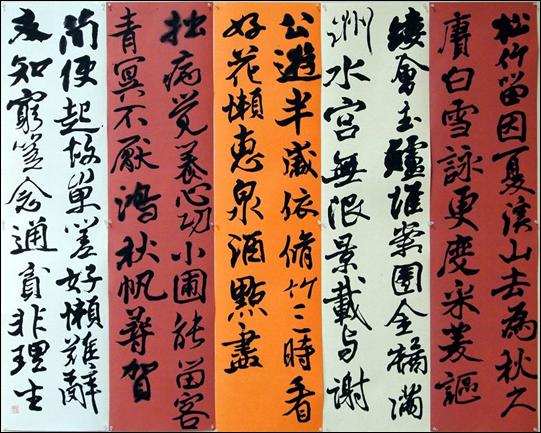 松竹留因夏溪山去為秋久
賡白雪詠更度采菱謳
縷會玉鱸堆案團金橘滿
洲水宮無限景載与謝
公遊半歲依脩竹三時看
好花懶惠泉酒點盡
拙病覺養心功小圃能留客
青冥不厭鴻秋帆尋賀
簡便起故巢嗟好懶難辭
友知窮豈念通貧非理生